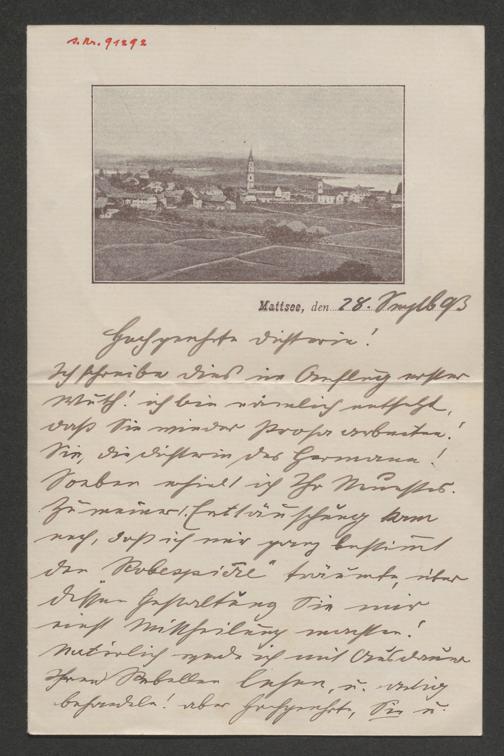 I.Nr. 91292
Mattsee, den 28. Septb 93
Hochgeehrte Dichterin!
Ich schreibe dies im Anflug erster
Wuth! ich bin nämlich entsetzt,
daß Sie wieder Prosa arbeiten!
Sie, die Dichterin des Hermann!
Soeben erhielt ich Ihr Neuestes.
Zu meiner Enttäuschung kam
noch, daß ich nur ganz bestimmt
den "Robespierre" träumte, über
dessen Gestaltung Sie mir
einst Mittheilung machten!
Natürlich werde ich mit Ausdauer
Ihren Rebellen lesen, u. artig
behandeln! aber hochgeehrte, Sie u.